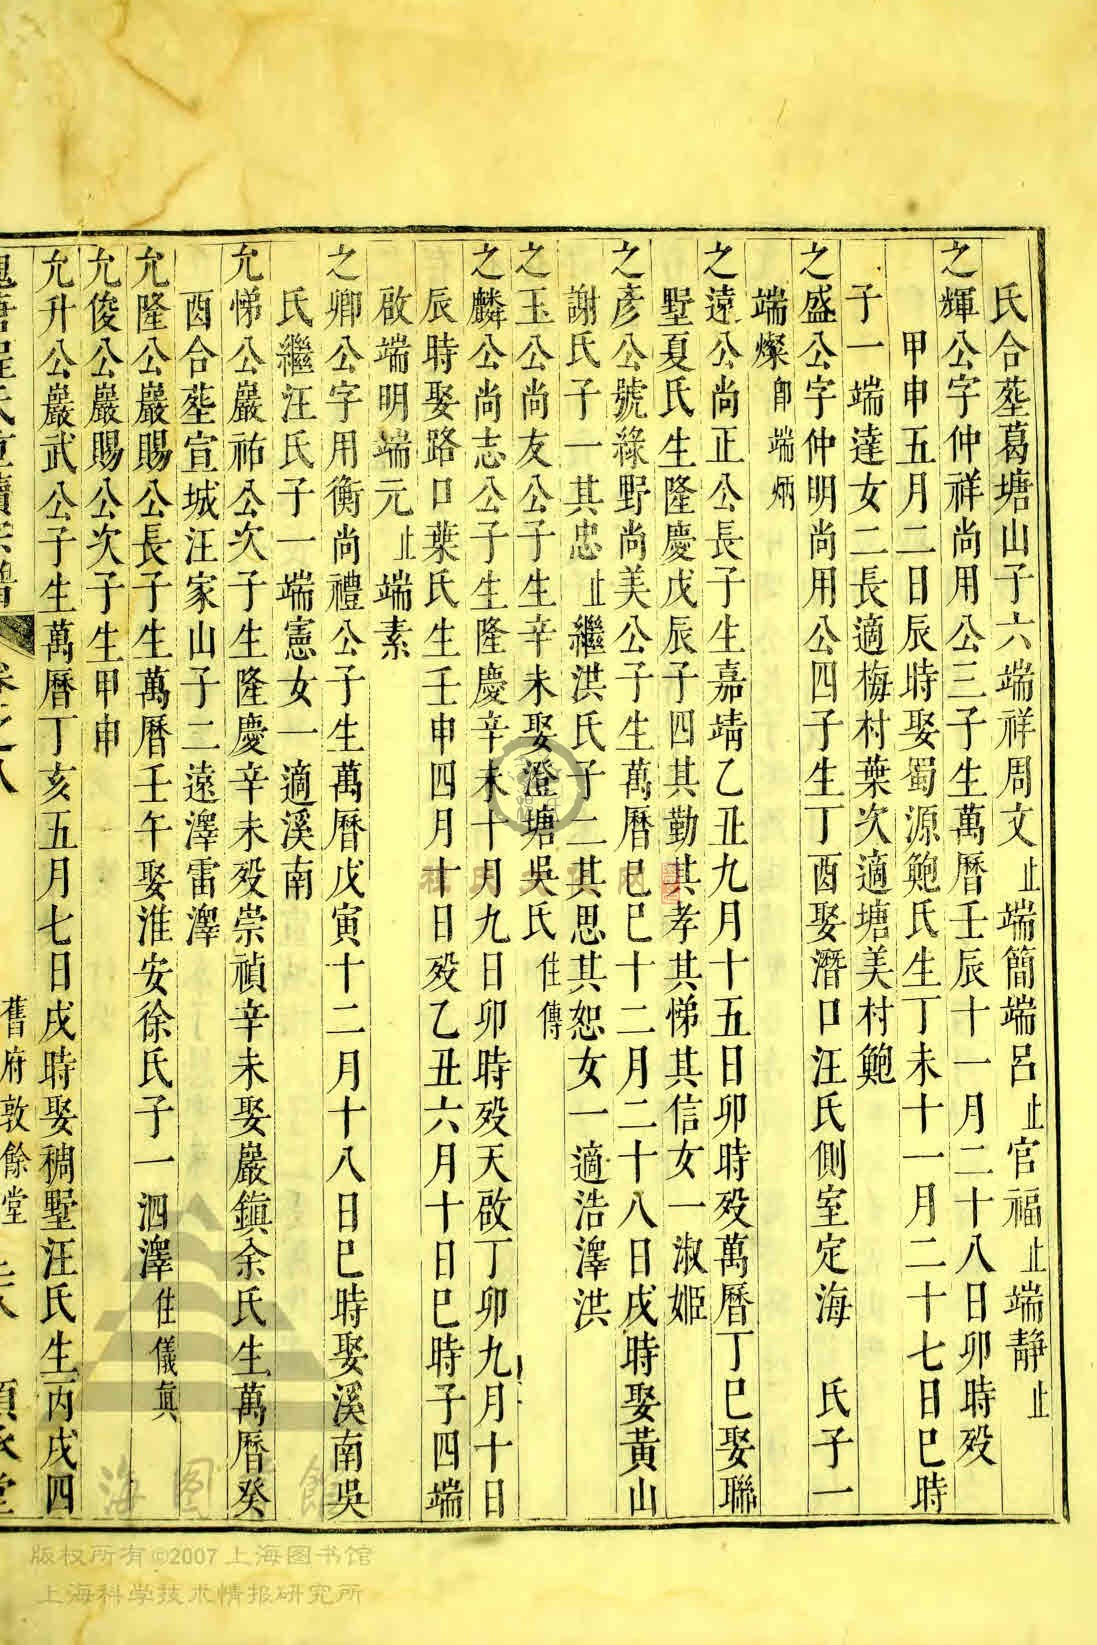 氏合塟葛塘山子六端祥周文止端簡端呂止官福止端靜止
之輝公字仲祥尚用公三子生萬曆壬辰十一月二十八日卯時歿
甲申五月二日辰時娶蜀源鮑氏生丁未十一月二十七日巳時
子一端達女二長適梅村葉次適塘美村鮑
之盛公字仲明尚用公四子生丁酉娶潛口汪氏側室定海 氏子一
端燦卽端炳
之遠公尚正公長子生嘉靖乙丑九月十五日卯時歿萬曆丁巳娶聯
墅夏氏生隆慶戊辰子四其勤其孝其悌其信女一淑姬
之彥公號綠野尚美公子生萬曆己巳十二月二十八日戌時娶黃山
謝氏子一其忠止繼洪氏子二其思其恕女一適浩澤洪
之玉公尚友公子生辛未娶澄塘吳氏住傳
之麟公尚志公子生隆慶辛未十月九日卯時歿天啟丁卯九月十日
辰時娶路口葉氏生壬申四月十日歿乙丑六月十日巳時子四端
啟端明端元止端素
之卿公字用衡尚禮公子生萬曆戊寅十二月十八日巳時娶溪南吳
氏繼汪氏子一端憲女一適溪南
允悌公巖祐公次子生隆慶辛未歿崇禎辛未娶巖鎮余氏生萬曆癸
酉合塟宣城汪家山子二遠澤雷澤
允隆公巖賜公長子生萬曆壬午娶淮安徐氏子一泗澤住儀眞
允俊公巖賜公次子生甲申
允升公巖武公子生萬曆丁亥五月七日戌時娶稠墅汪氏生丙戌四
卷之八
舊府敦餘堂
版权所有©2007上海图书馆
上海科学技术情报研究所